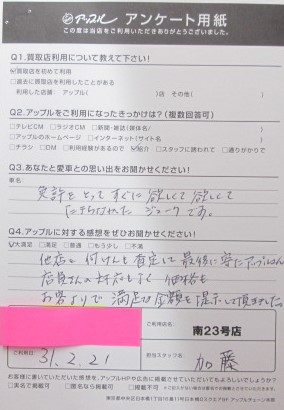 アップル アンケート用紙
この度は当店をご利用いただきありがとうございました。
Q1.買取店利用について教えて下さい!
☑買取店を初めて利用
□過去に買取店を利用したことがある
利用した店舗: アップル( )店 その他( )
Q2.アップルをご利用になったきっかけは?(複数回答可)
□テレビCM □ラジオCM □新聞・雑誌(媒体名/ )
□アップルのホームページ □インターネット(サイト名 )
□チラシ □DM □利用経験があるので ☑紹介 □スタッフに誘われて □通りがかりで
Q3.あなたと愛車との思い出をお聞かせください!
車名:
免許をとってすぐに欲しくて欲しくて
たまらなかった ジュークです。
Q4.アップルに対する感想をぜひお聞かせください!
☑大満足 □満足 □普通 □もう少し □不満
他店も何けんも査定して最後に寄ったアップルさん
店員さんの対応もよく 価格も
お客よりで満足な金額を提示して頂きました。
ご利用店名:
南23号店
ご利用日
31.2.21
担当スタッフ名:
加藤
お客様に書いていただいた感想を、アップルHPや広告に掲載させていただいてもよろしいでしょうか?
□実名で掲載可 □匿名なら掲載可 □掲載不可